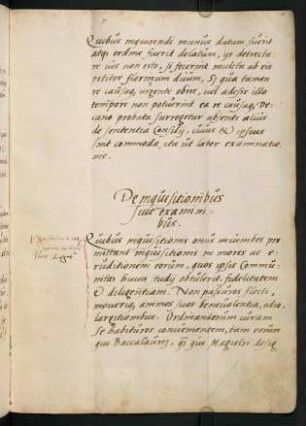 Quibus inquirendi munus datum fuerit
atq; ordine fuerit delatum, id detrecta
re ius non esto, si fecerint mulcta ab eis
petitor florenorum duum, Si qua tamen
re causaq; urgente obire, vel adesse illo
tempore non potuerint ea re causaq; De-
cano probata surrogetur absenti alius
de sententia Consilij, cuius & ipsius
sint commoda, ita ut labor examinatio
nis.
De inquisitionibus
sive exami-
nibus.
Quibus inquisitionis onus
mittant inquisitionis in mores ac e-
ruditionem eorum, quos ipsis Commu-
nitas huius studij obtulerit, fidelitatem
& diligentiam. Non passuros flecti,
moveriq; animos suos benevolentia, odio,
largitionibus. Ordinandorum curam
se habituros convenientem, tam eorum
qui Baccalaurei, quam qui Magistri